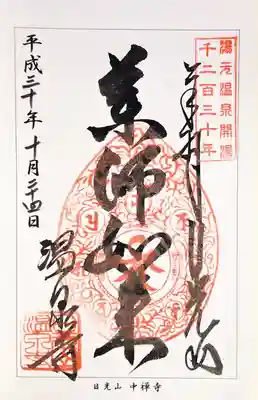 湯元温泉開湯
千二百三十年
日光山
薬師如来
平成三十年十月二十四日
温泉寺
日光山 中禅寺